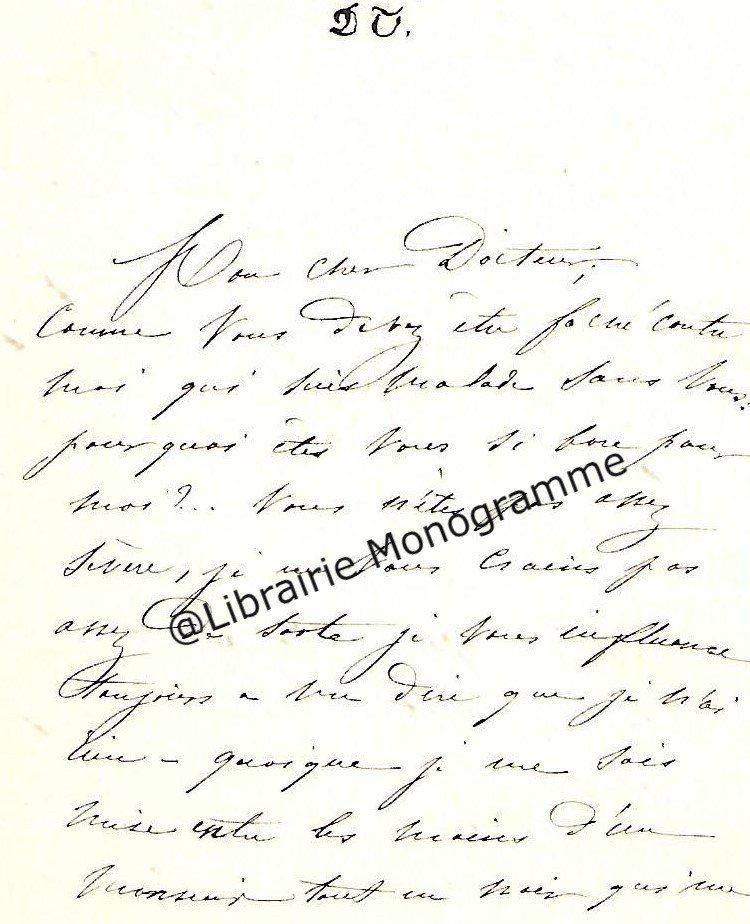 DV.
Mon cher Docteur,
Comme Vous devez être faché contre
moi qui suis malade sans Vous.
pourquoi êtes Vous si bon pour
moi?.. Vous n'êtes pas assez
sévère, je ne Vous crains pas
assez de sorte je Vous influence
toujours a me dire que je n'ai
rien - quoique je me sois
mise entre les mains d'un
monsieur tout en noir qui me
@Librairie Monogramme